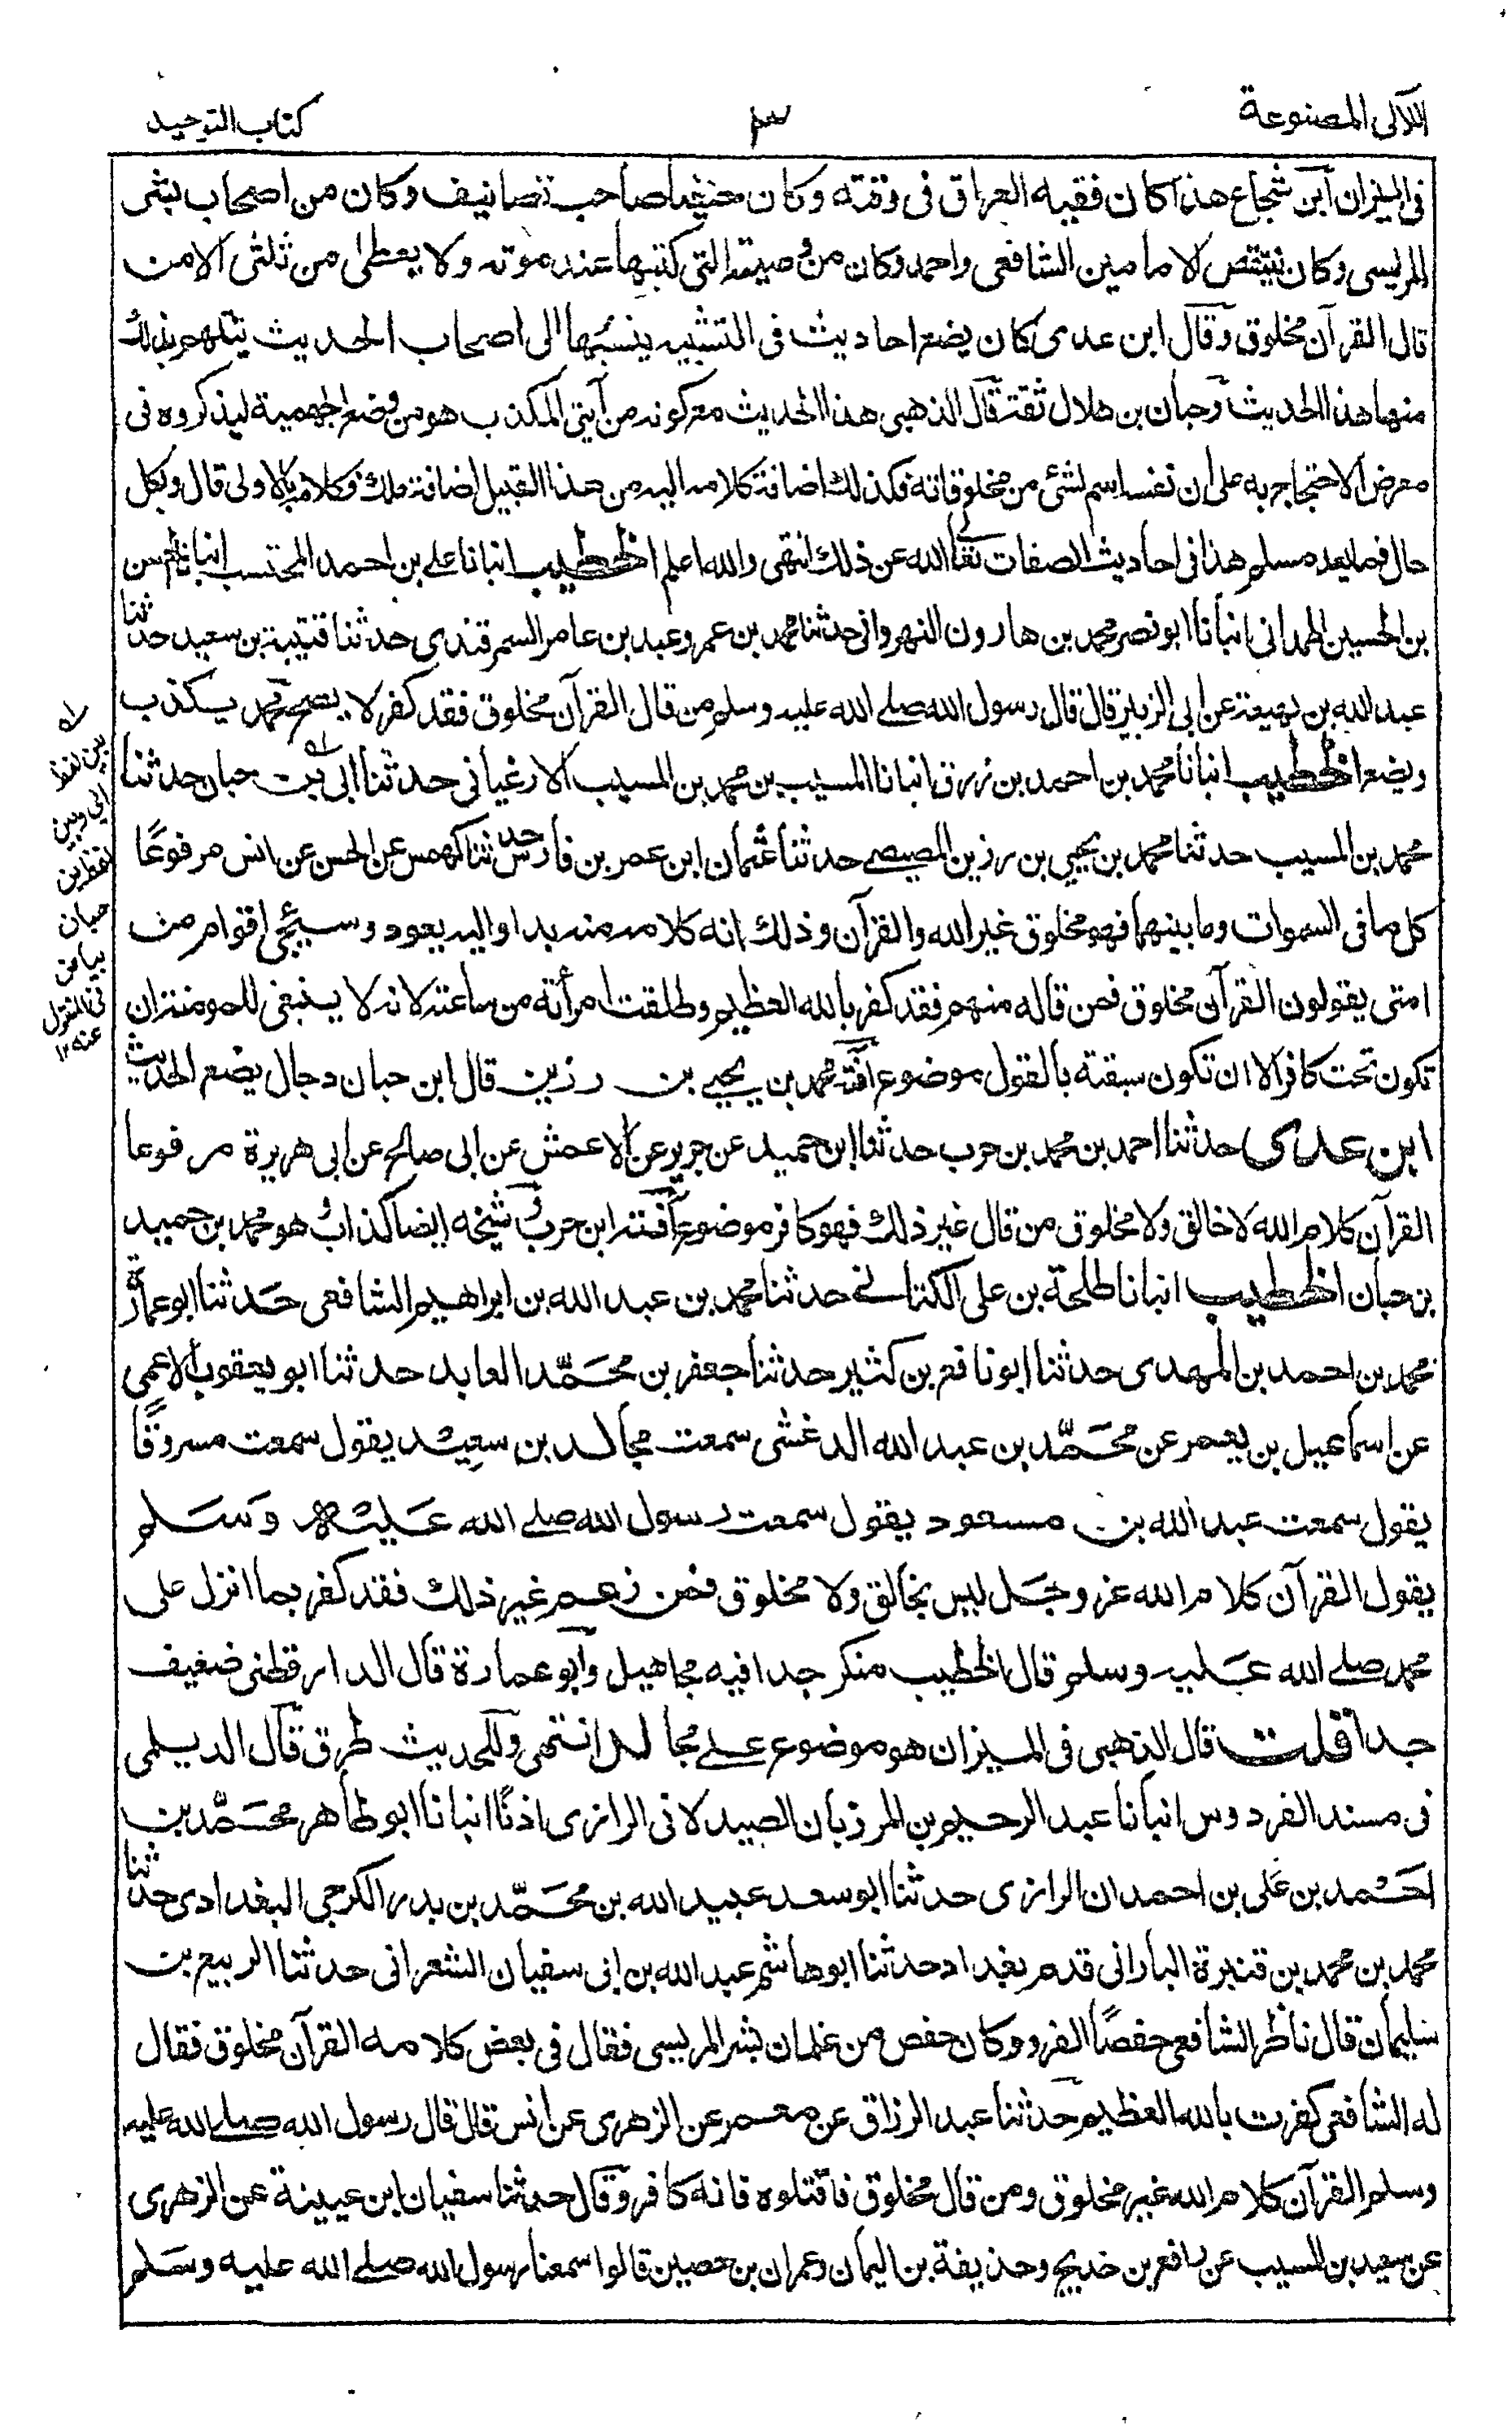 اللآلى المصنوعة
٣
كتاب التوحيد
فى الميزان ابن شجاع هذا كان فقيه العراق فى وقته وكان حنفيا صاحب تصانيف وكان من اصحاب بشر
المريسى وكان ينتقص الامامين الشافعى واحمد وكان من وصيته التى كتبها عند موته ولا يعطى من ثلثى الا من
قال القرآن مخلوق وقال ابن عدى كان يضع احاديث فى التشبيه ينسبها الى اصحاب الحديث يثلبهم بذلك
منها هذا الحديث وحبان بن هلال ثقة قال الذهبى هذا الحديث مع كونه من أبين الكذب هو من وضع الجهمية ليذكروه فى
معرض الاحتجاج به على ان نفسه اسم لشئ من مخلوقاته فكذلك اضافة كلامه اليه من هذا القبيل اضافة ملك وكلامه بالاولى قال وبكل
حال فما يعد مسلم هذا فى احاديث الصفات تعالى الله عن ذلك انتهى والله اعلم الخطيب انبانا على بن احمد المحتسب انبانا الحسن
بن الحسين الهمدانى انبأنا ابو نصر محمد بن هارون النهروانى حدثنا محمد بن عمرو عبد بن عامر السمرقندى حدثنا قتيبة بن سعيد حدثنا
عبد الله بن لهيعة عن ابى الزبير قال قال رسول الله صلى الله عليه وسلم من قال القرآن مخلوق فقد كفر لا يصح محمد يكذب
ويضع الخطيب انبانا محمد بن احمد بن رزق انبانا المسيب بن محمد بن المسيب الارغيانى حدثنا ابى بن حبان حدثنا
محمد بن المسيب حدثنا محمد بن يحيى بن رزين المصيصى حدثنا عثمان ابن عمر بن فارس حدثنا كهمس عن الحسن عن انس مرفوعًا
كل ما فى السموات وما بينهما فهو مخلوق غير الله والقرآن وذلك انه كلامه منه بدا واليه يعود وسيجئ اقوام من
امتى يقولون القرآن مخلوق فمن قاله منهم فقد كفر بالله العظيم وطلقت امرأته من ساعته لانه لا ينبغى للمومنة ان
تكون تحت كافر الا ان تكون سبقته بالقول موضوع آفته محمد بن يحيى بن رزين قال ابن حبان دجال يضع الحديث
ابن عدى حدثنا احمد بن محمد بن حرب حدثنا ابن حميد عن جرير عن الاعمش عن ابى صالح عن ابى هريرة مرفوعا
القرآن كلام الله لا خالق ولا مخلوق من قال غير ذلك فهو كافر موضوع آفته ابن حرب وشيخه ايضا كذاب هو محمد بن حميد
بن حبان الخطيب انبانا طلحة بن على الكتانى حدثنا محمد بن عبد الله بن ابراهيم الشافعى حَدثنا ابو عمارة
محمد بن احمد بن المهدى حدثنا ابو نافع بن كثير حدثنا جعفر بن محَمّد العابد حدثنا ابو يعقوب الاعمى
عن اسماعيل بن يعمر عن محَمّد بن عبد الله الدغشى سمعت مجالد بن سعِيْد يقول سمعت مسروقًا
يقول سمعت عبد الله بن مسعود يقول سمعت رسول الله صلى الله عَليْه وَسَلم
يقول القرآن كلام الله عز وجَل ليس بخالق ولا مخلوق فمن زعم غير ذلك فقد كفر بما انزل على
محمد صلى الله عَليه وسلم قال الخطيب منكر جدا فيه مجاهيل وابو عمارة قال الدارقطنى ضعيف
جدا قلت قال الذهبى فى الميزان هو موضوع على مجالد انتهى وللحديث طرق قال الديلمى
فى مسند الفردوس انبانا عبد الرحيم بن المرزبان الصيدلانى الرازى اذنًا انبانا ابو طاهر محَمّد بن
احَمْد بن عَلى بن احمدان الرازى حدثنا ابو سعد عبيد الله بن محَمّد بن بدر الكرجى البغدادى حدثنا
محمد بن محمد بن قنبرة البارانى قدم بغداد حدثنا ابو هاشم عبد الله بن ابى سفيان الشعرانى حدثنا الربيع بن
سليمان قال ناظر الشافعى حفصًا الفرد وكان حفص من غلمان بشر المريسى فقال فى بعض كلامه القرآن مخلوق فقال
له الشافعى كفرت بالله العظيم حدثنا عبد الرزاق عن معمر عن الزهرى عن انس قال قال رسول الله صلى الله عليه
وسلم القرآن كلام الله غير مخلوق ومن قال مخلوق فاقتلوه فانه كافر وقال حدثنا سفيان ابن عيينة عن الزهرى
عن سعيد بن المسيب عن رافع بن خديج وحذيفة بن اليمان وعمران بن حصين قالوا سمعنا رسول الله صلى الله عليه وسَلم
له
بين لفظ
ابى وبين
لفظ بن
حبان
بياض
فى المنقول
عنه ١٢